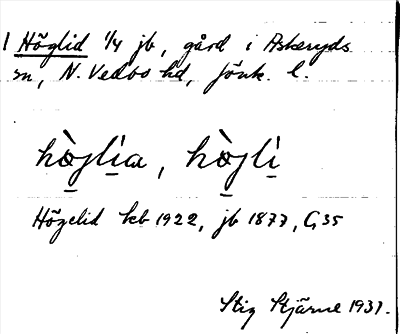 1 Höglid 1/4 jb, gård i Askeryds
sn, N. Vedbo hd, Jönk. l.
hö̀glìa, hö̀glì
Högelid kb 1922, jb 1877, G35
Stig Stjärne 1931.